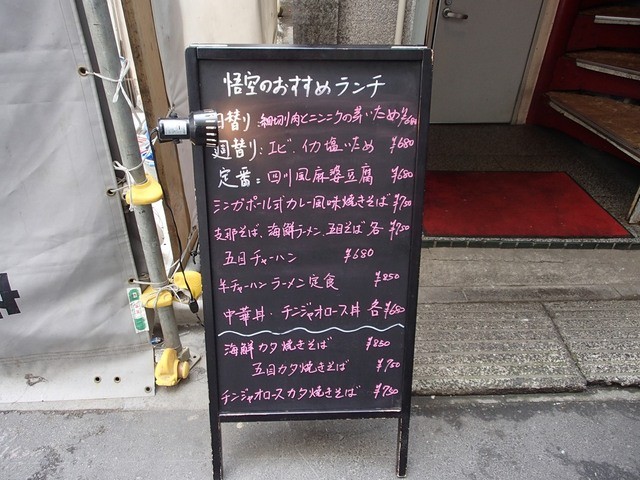 悟空のおすすめランチ
日替り:細切り肉とニンニクの芽いため ¥680
週替り:エビ、イカ塩いため ¥680
定番:四川風麻婆豆腐 ¥680
シンガポール式カレー風味焼きそば ¥750
支那そば、海鮮ラーメン、五目そば各 ¥750
五目チャーハン ¥680
半チャーハン ラーメン定食 ¥850
中華丼・チンジャオロース丼 各¥680
海鮮カタ焼きそば ¥850
五目カタ焼きそば ¥750
チンジャオロースカタ焼きそば ¥750